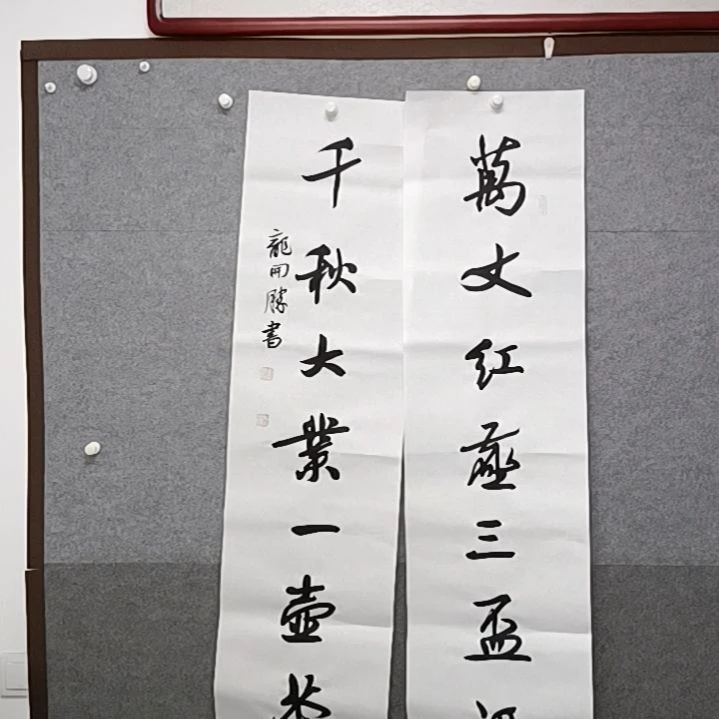 萬丈红塵三盃
千秋大業一壺茶
龍開勝書